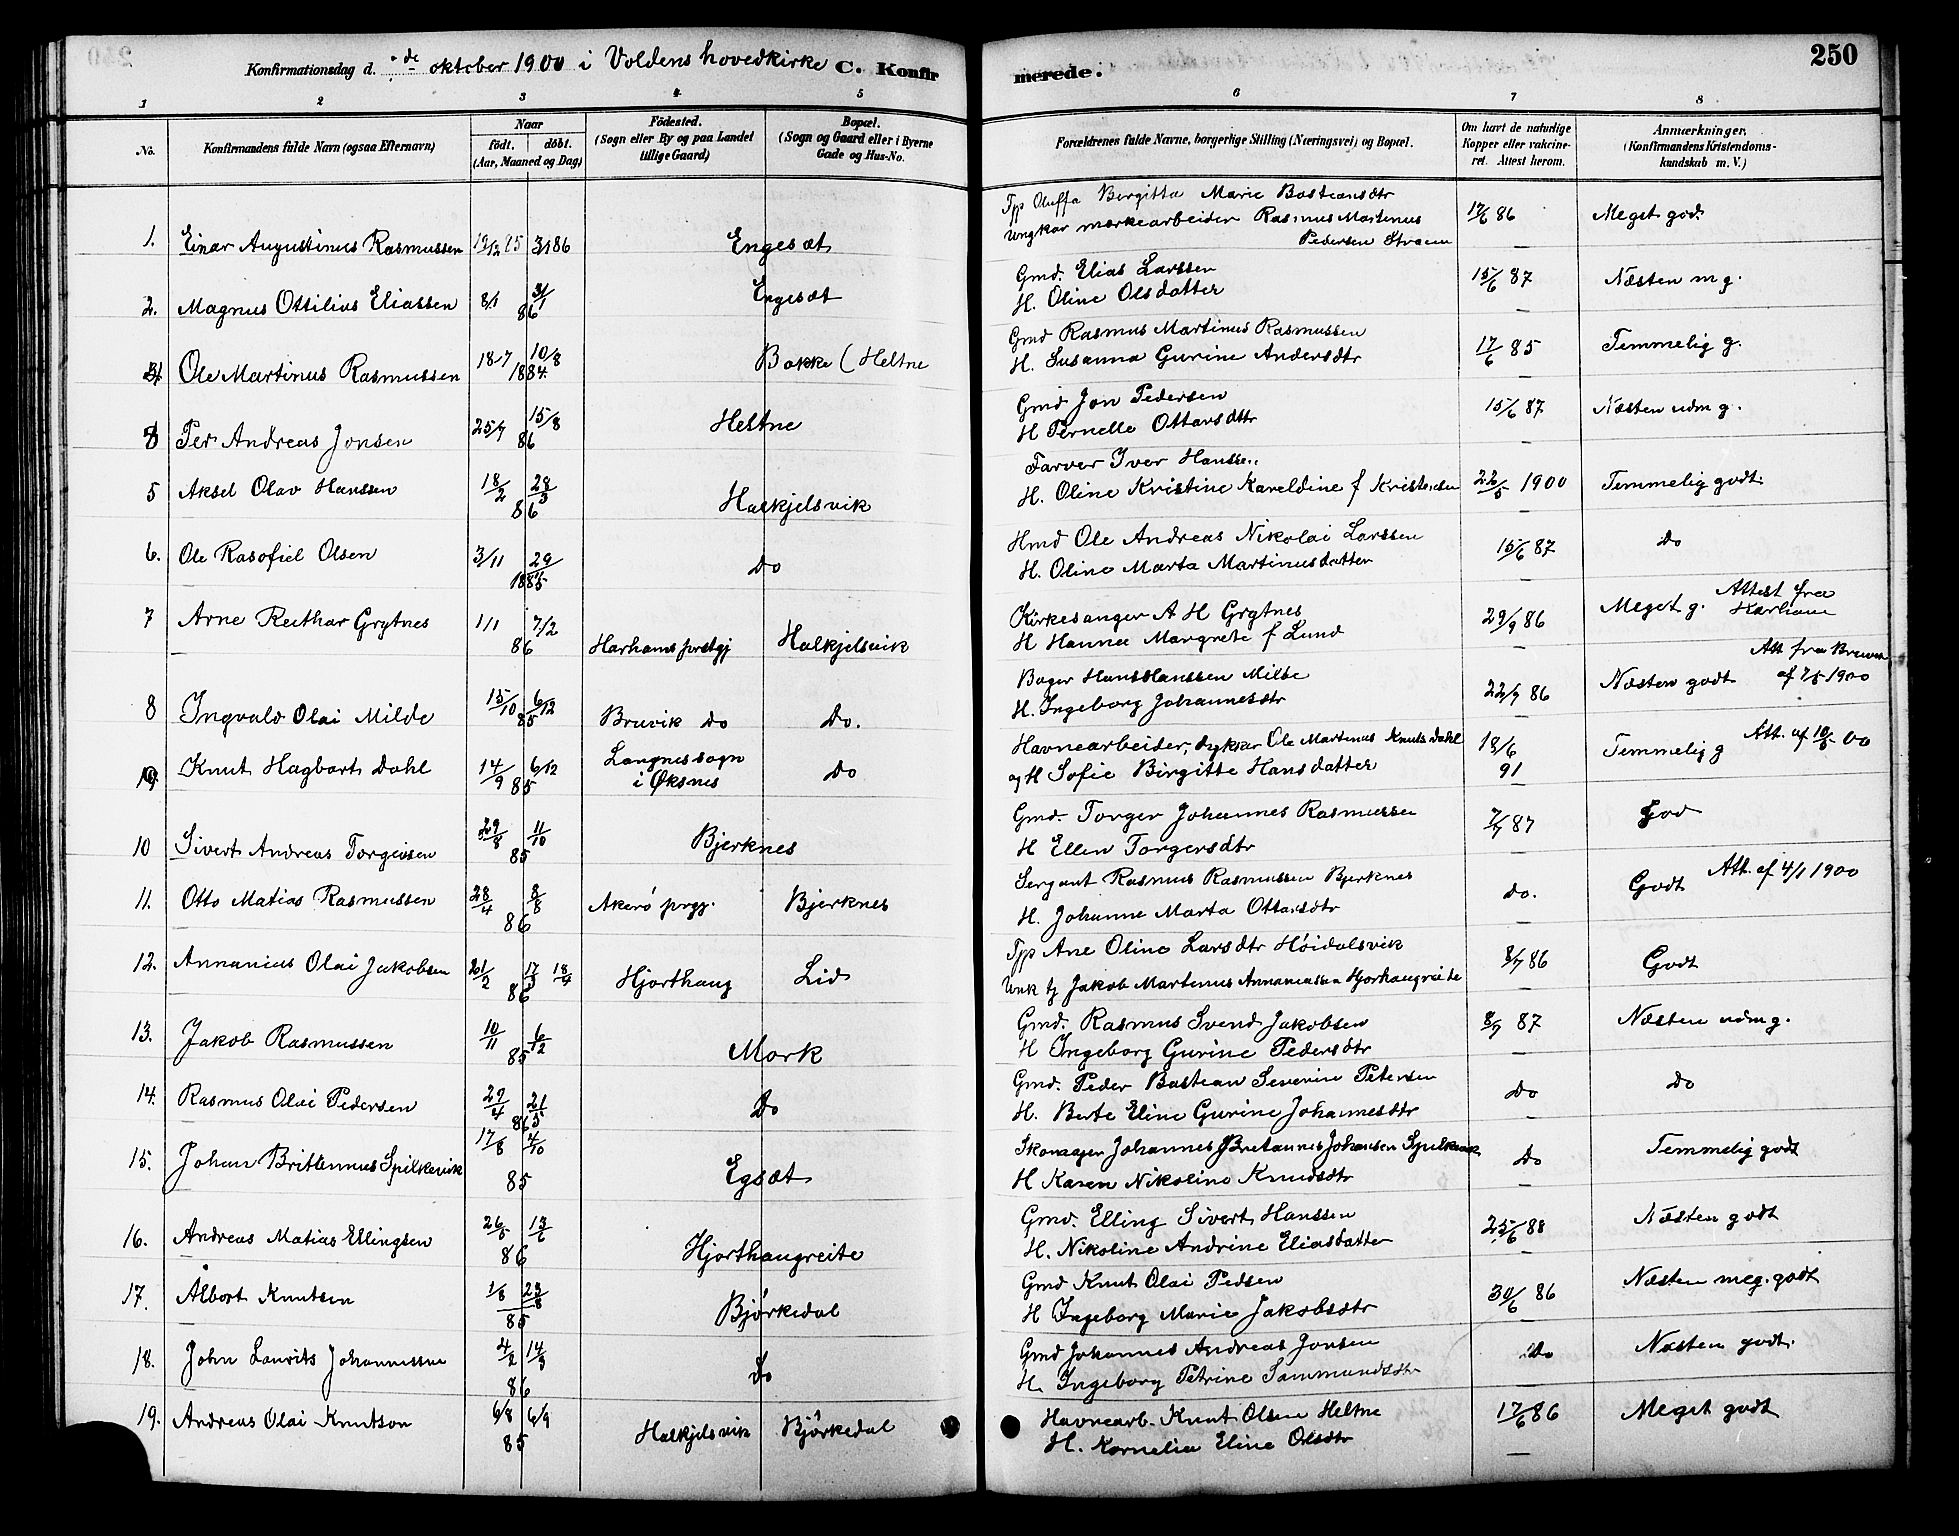 250
Konfirmationsdag d. de oktober 1900 i Voldens hovedkirke C. Konfirmerede.
1 2 3 4 5 6 7 8
No. Konfirmandens fulde Navn (ogsaa Efternavn)
Naar
födt. döbt.
(Aar, Maaned og Dag)
Födested.
(Sogn eller By og paa Landet
tillige Gaard)
Bopæl.
(Sogn og Gaard eller i Byerne
Gade og Hus-No.
Forældrenes fulde Navne, borgerlige Stilling (Næringsvei) og Bopæl.
Om havt de naturlige
Kopper eller vakcineret.
Attest herom.
Anmærkninger.
(Konfirmandens Kristendomskundskab
m. V.)
Birgitta Marie Bastiansdtr
1. Einar Augustinus Rasmussen 19/12 85 3/1 86 Engesæt Ungkar markearbeider Rasmus Martinus 17/6 86 Meget god.
Pedersen
2. Magnus Ottilius Eliassen 8/1 31/1 86 Engesæt Gmd. Elias Larssen 15/6 87 Næsten m g.
H. Oline Olsdatter
3 Ole Martinus Rasmussen 18-7 10/8 1884. Bakke (Heltne Gmd Rasmus Martinus Rasmussen 17/6 85 Temmelig g.
H. Susanna Gurine Andersdtr
Per Andreas Jonsen 25/7 15/8 86 Heltne Gmd Jon Pedersen 15/6 87 Næsten udm g.
H Pernelle Ottarsdtr
5 Aksel Olav Hanssen 18/2 28/3 86 Halkjelsvik Farver Iver Hanssen 22/5 1900 Temmelig godt.
H. Oline Kristine Kareldine f Kristensen
6. Ole Rasofiel Olsen 3/11 29/ 1885 Do Hmd Ole Andreas Nikolai Larssen 15/6 87 Do
H. Oline Marta Martinusdatter
7 Arne Reithar Grytnes 1/1 7/2 86 Harhams prstgj Halkjelsvik Kirkesanger A H Grytnes 29/9 86 Meget g. Attest fra Harham
H Hanna Margrete f Lund
8 Ingvald Olai Milde 15/10 6/12 85 Bruvik do Do. Bager Hans Hanssen Milde 22/7 86 Næsten godt Att. fra Bruvik
af 7/5 1900
H. Ingeborg Johannesdtr
9 Knut Hagbart Dahl 14/9 6/12 85 Langnes sogn
i Øksnes Do Havnearbeider, dykker Ole Martinus Knuts Dahl 18/6 91 Temmelig g Att. af 10/5 00
og H Sofie Birgitte Hansdatter
10 Sivert Andreas Torgersen 29/8 11/10 85 Bjerknes Gmd. Torger Johannes Rasmussen 7/7 87 God
H Ellen Torgersdtr
11. Otto Matias Rasmussen 28/4 8/8 86 Akerø prgj. Bjerknes Sergant Rasmus Rasmussen Bjerknes do. Godt Att. af 4/1 1900
H. Johanne Marta Ottarsdtr
12. Annanias Olai Jakobsen 21/2 17/3 18/4 86 Hjorthaug Lid Tjp Ane Oline Larsdtr Høidalsvik 8/7 86 Godt
Unk tj Jakob Martinus Annaniassen Hjorhaugreite
13. Jakob Rasmussen 10/11 6/12 85 Mork Gmd. Rasmus Svend Jakobsen 8/7 87 Næsten udm g.
H Ingeborg Gurine Pedersdtr
14. Rasmus Olai Pedersen 29/4 21/5 86 Do Gmd. Peder Bastian Severin Petersen Do Do
H. Berte Eline Gurine Johannesdtr
15. Johan Brittennus Spilkevik 17/8 4/10 85 Egsæt Skomager Johannes Bretannes Johansen Spilkevik Do Temmelig godt
H Karen Nikoline Knudsdtr
16. Andreas Matias Ellingsen 26/5 13/6 86 Hjorthaugreite Gmd. Elling Sivert Hanssen 25/6 88 Næsten godt
H. Nikoline Andrine Eliasdatter
17. Albert Knutsen 1/8 23/8 85 Bjørkedal Gmd Knut Olai Pedsen 30/6 86 Næsten meg. godt
H Ingeborg Marie Jakobsdtr
18. John Lauvits Johannessen 4/2 14/3 86 Do Gmd Johannes Andreas Jonsen Do Næsten godt.
H. Ingeborg Petrine Sammundsdtr
19. Andreas Olai Knutson 6/8 6/9 85 Halkjelsvik Bjørkedal Havnearb. Knut Olsen Heltne 17/6 86 Meget godt
H. Kornelia Eline Olsdtr